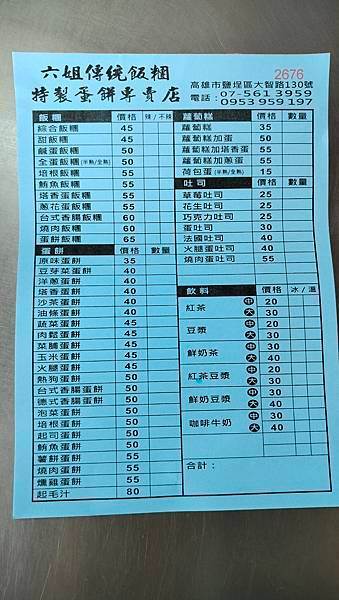 六姐傳統飯糰
特製蛋餅專賣店
2676
高雄市鹽埕區大智路130號
電話：07-561 3959
0953 959 197
飯糰 價格 辣/不辣
綜合飯糰 45
甜飯糰 45
鹹蛋飯糰 50
全蛋飯糰(半熟/全熟) 50
培根飯糰 55
鮪魚飯糰 55
塔香蛋飯糰 55
蔥花蛋飯糰 55
台式香腸飯糰 60
燒肉飯糰 60
蛋餅飯糰 65
蛋餅 價格 數量
原味蛋餅 35
豆芽菜蛋餅 40
洋蔥蛋餅 40
塔香蛋餅 40
沙茶蛋餅 40
油條蛋餅 40
蔬菜蛋餅 45
肉鬆蛋餅 45
菜脯蛋餅 45
玉米蛋餅 45
火腿蛋餅 45
熱狗蛋餅 50
台式香腸蛋餅 50
德式香腸蛋餅 50
泡菜蛋餅 50
培根蛋餅 50
起司蛋餅 50
鮪魚蛋餅 50
薯餅蛋餅 55
燒肉蛋餅 55
燻雞蛋餅 55
起毛汁 80
蘿蔔糕 價格 數量
蘿蔔糕 35
蘿蔔糕加蛋 50
蘿蔔糕加塔香蛋 55
蘿蔔糕加蔥蛋 55
荷包蛋(半熟/全熟) 15
吐司 價格 數量
草莓吐司 25
花生吐司 25
巧克力吐司 25
蛋吐司 30
法國吐司 40
火腿蛋吐司 40
燒肉蛋吐司 55
飲料 價格 冰/溫
紅茶 中 20
大 30
豆漿 中 20
大 30
鮮奶茶 中 30
大 40
紅茶豆漿 中 20
大 30
鮮奶豆漿 中 30
大 40
咖啡牛奶 中 30
大 40
合計：